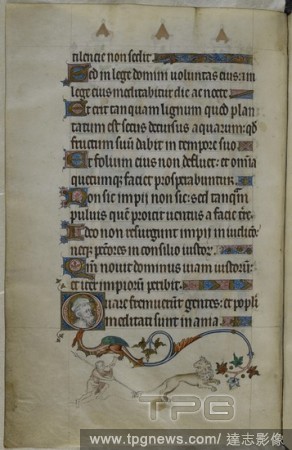 tilencie non sedit.
Sed in lege domini voluntas eius: ⁊ in
lege eius meditabitur die ac nocte.
Et erit tanquam lignum quod plan
tatum est secus decursus aquarum: qd
fructum suū dabit in tempore suo.
Et folium eius non defluet: et omīa
quecumqꝫ faciet prosperabuntur.
Non sic impii non sic: sed tanqͣm
puluis quē proicit uentus a facie tͬre.
Ideo non resurgunt impii in iudicio:
neqꝫ pctōres in consilio iustorͫ.
Qm̄ nouit dominus uiam iustorū:
et iter impiorū peribit.
Quare fremuerūt gentes: et popli
meditati sunt inania.
TPG
www.tpgnews.com / 達志影像